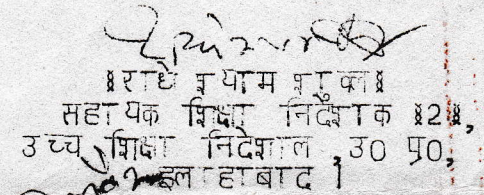 ॥राधे श्याम शुक्ल॥
सहायक शिक्षा निदेशक ॥2॥,
उच्च शिक्षा निदेशाल , उ0 प्र0,
इलाहाबाद ।